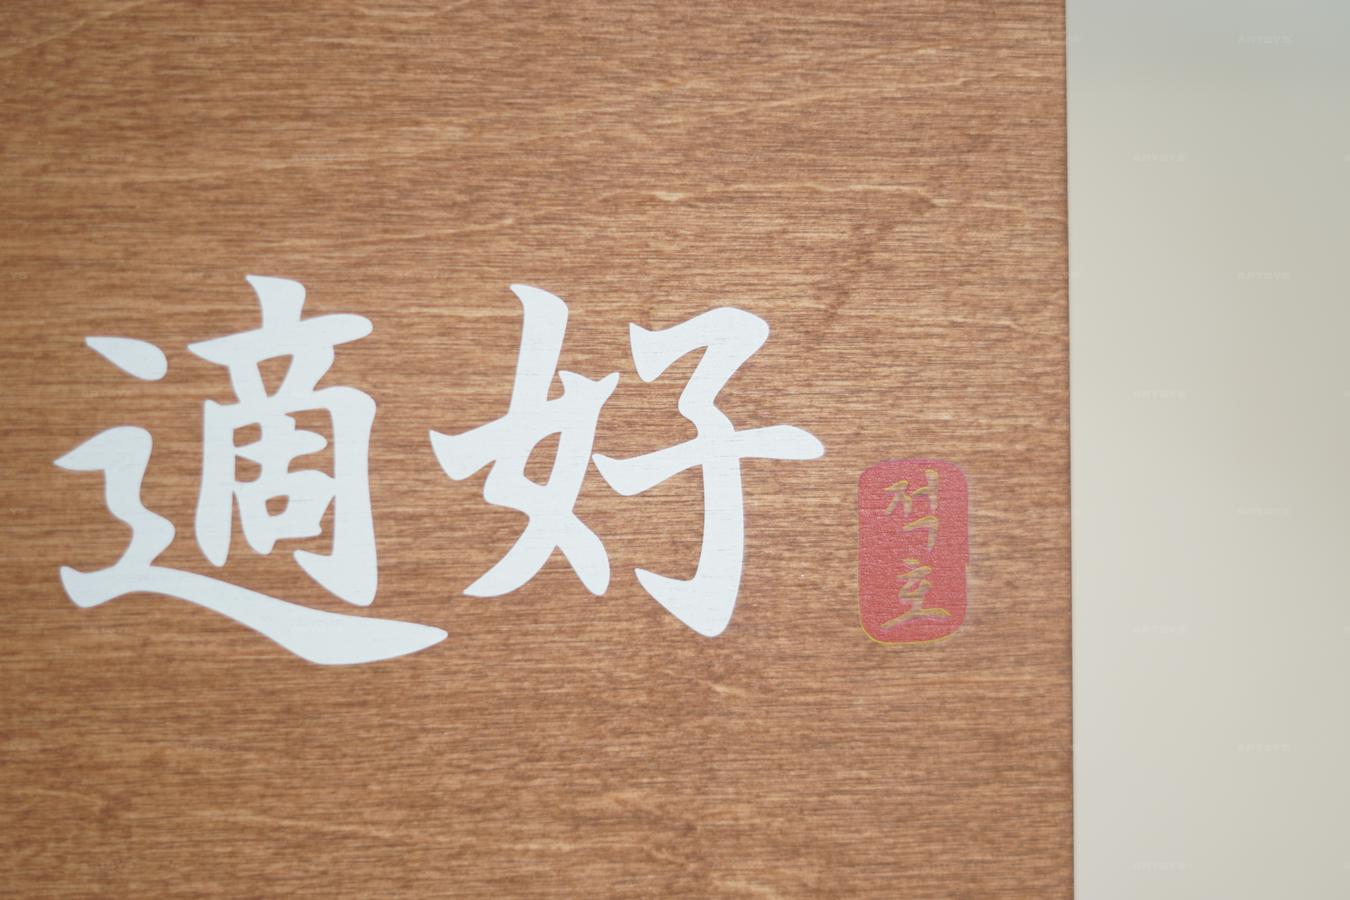 適好
적호